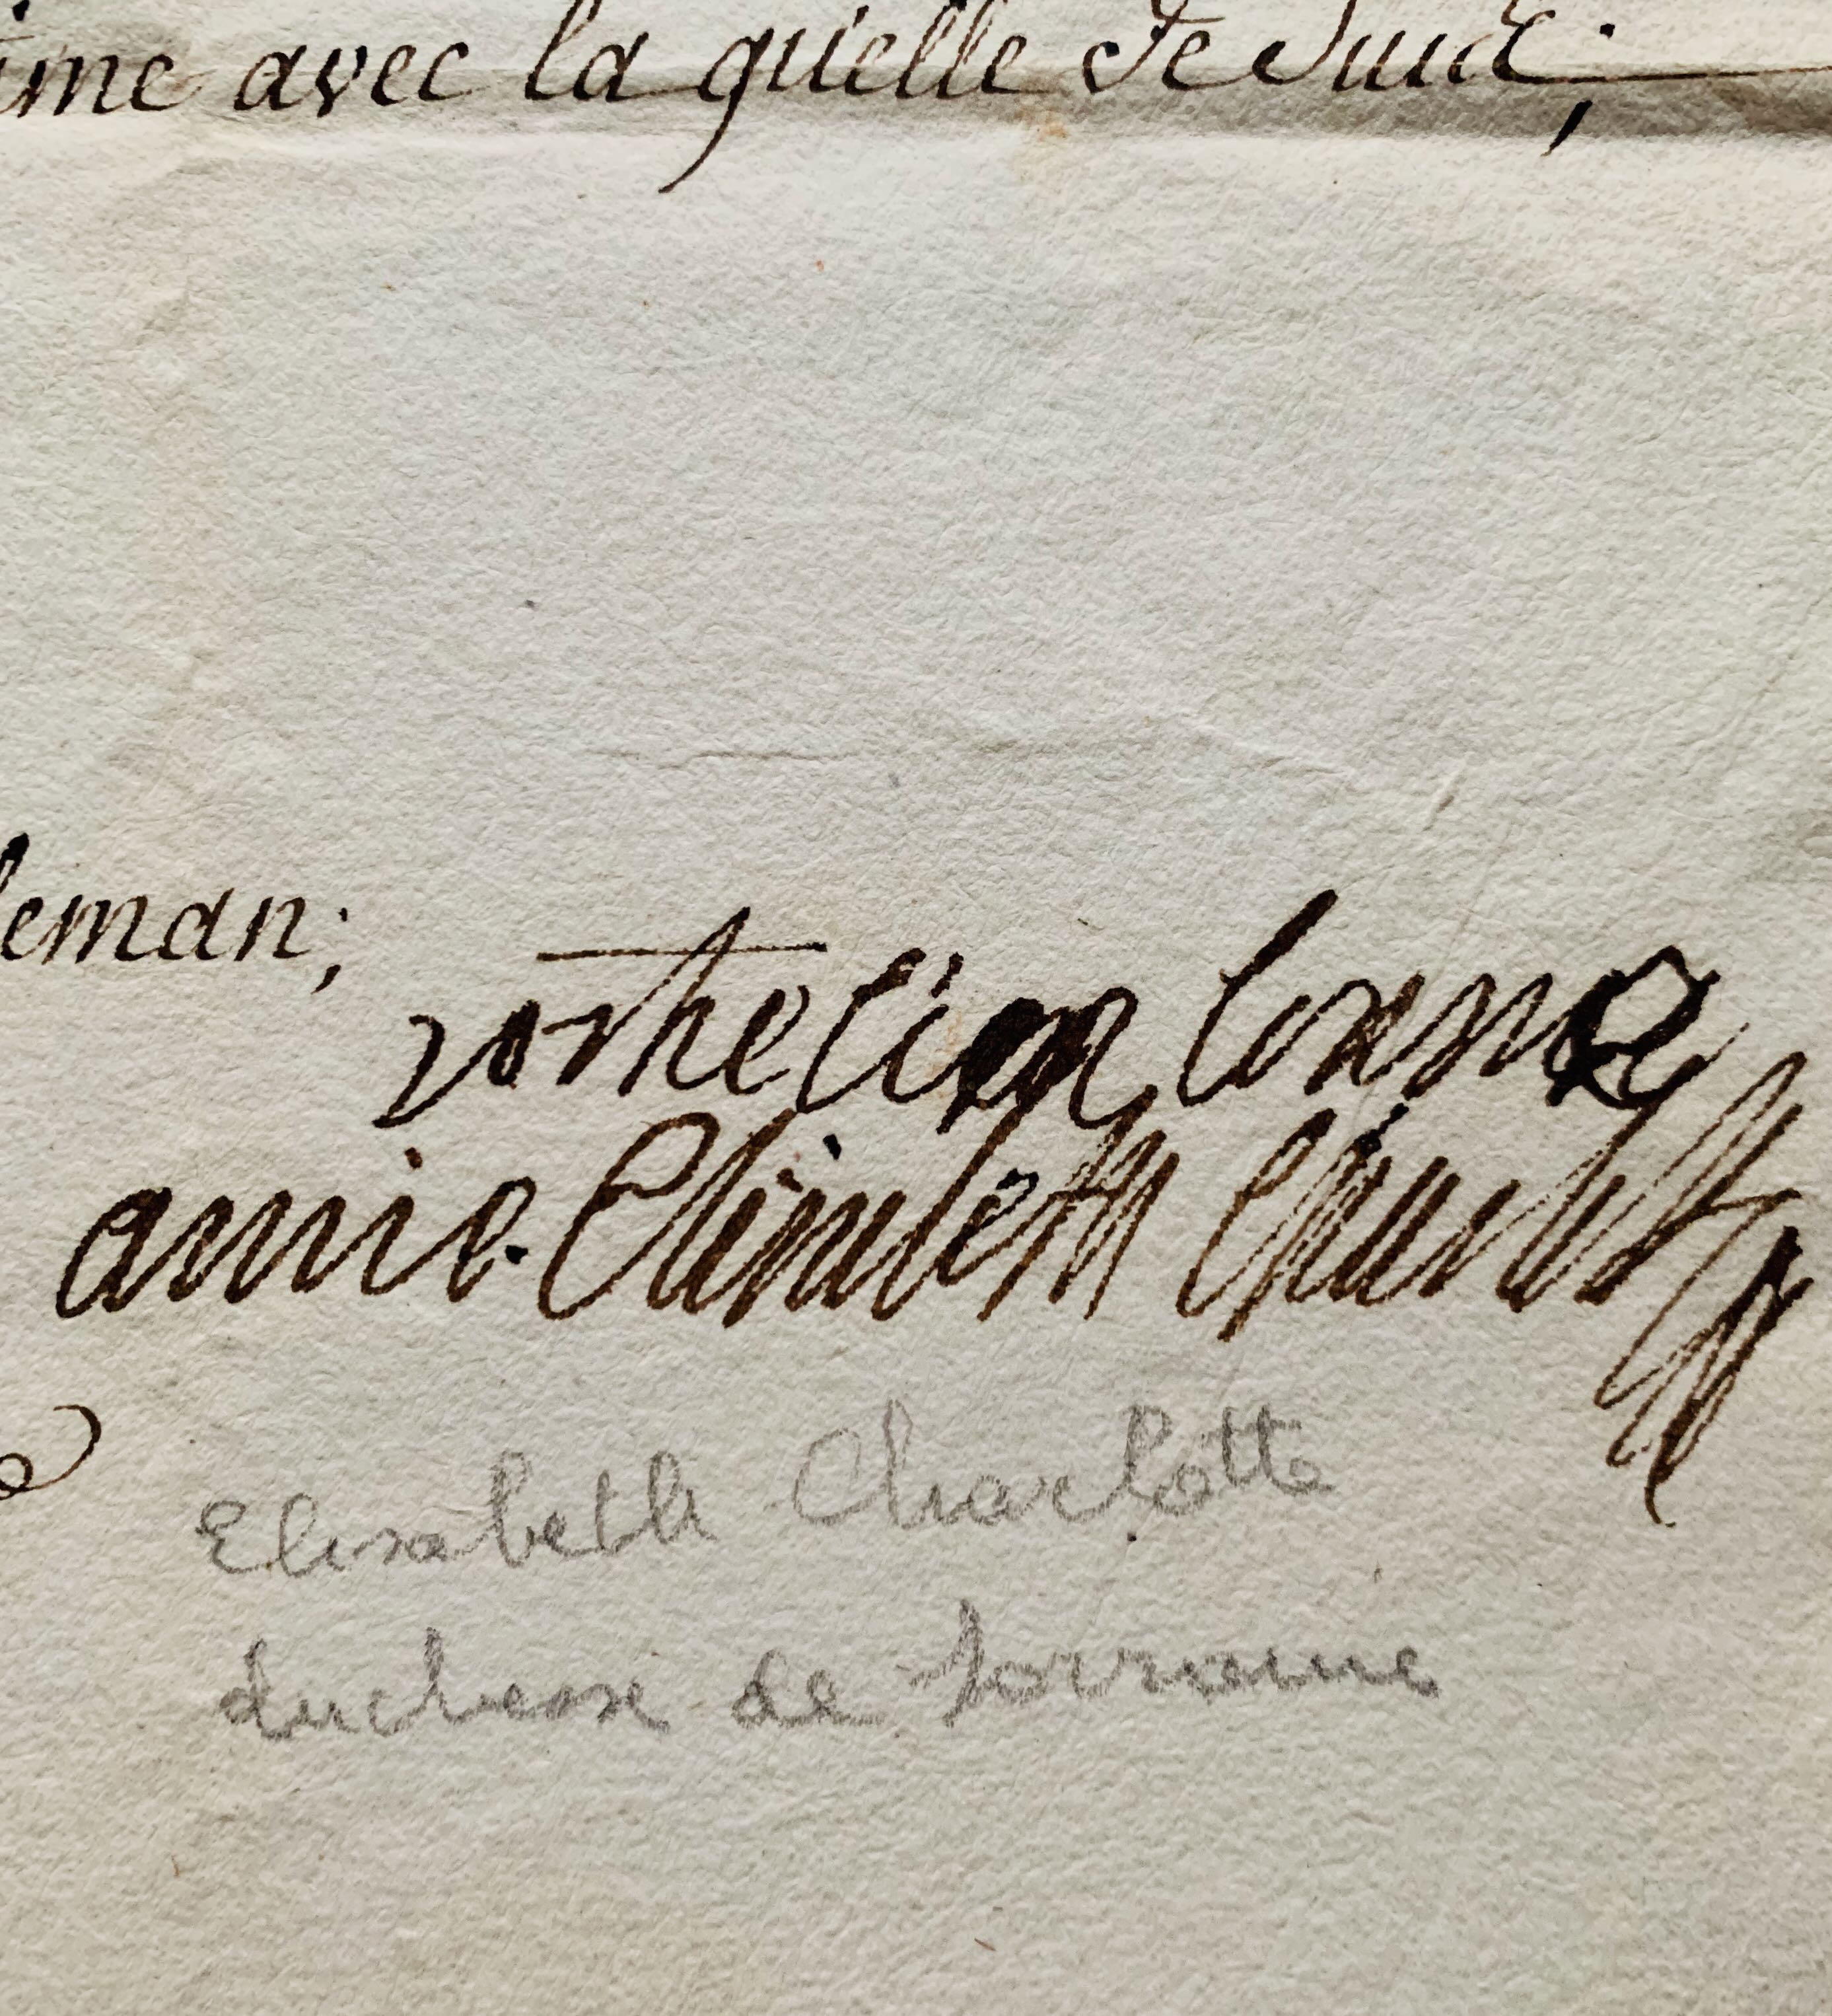 ime avec la qu'elle Je Suid;
leman;
votre bien bonne
amie. Elisabeth Charlotte
Elisabeth Charlotte
duchesse de Lorraine